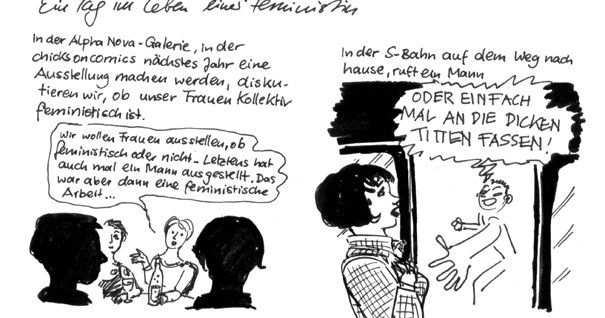 Ein Tag im Leben einer Feministin
In der Alpha Nova-Galerie, in der
chicksoncomics nächstes Jahr eine
Ausstellung machen werden, disku-
tieren wir, ob unser Frauen Kollektiv
feministisch ist.
Wir wollen Frauen ausstellen, ob
feministisch oder nicht - Letztens hat
auch mal ein Mann ausgestellt. Das
war aber dann eine feministische
Arbeit...
In der S-Bahn auf dem Weg nach
hause, ruft ein Mann
ODER EINFACH
MAL AN DIE DICKEN
TITTEN FASSEN!